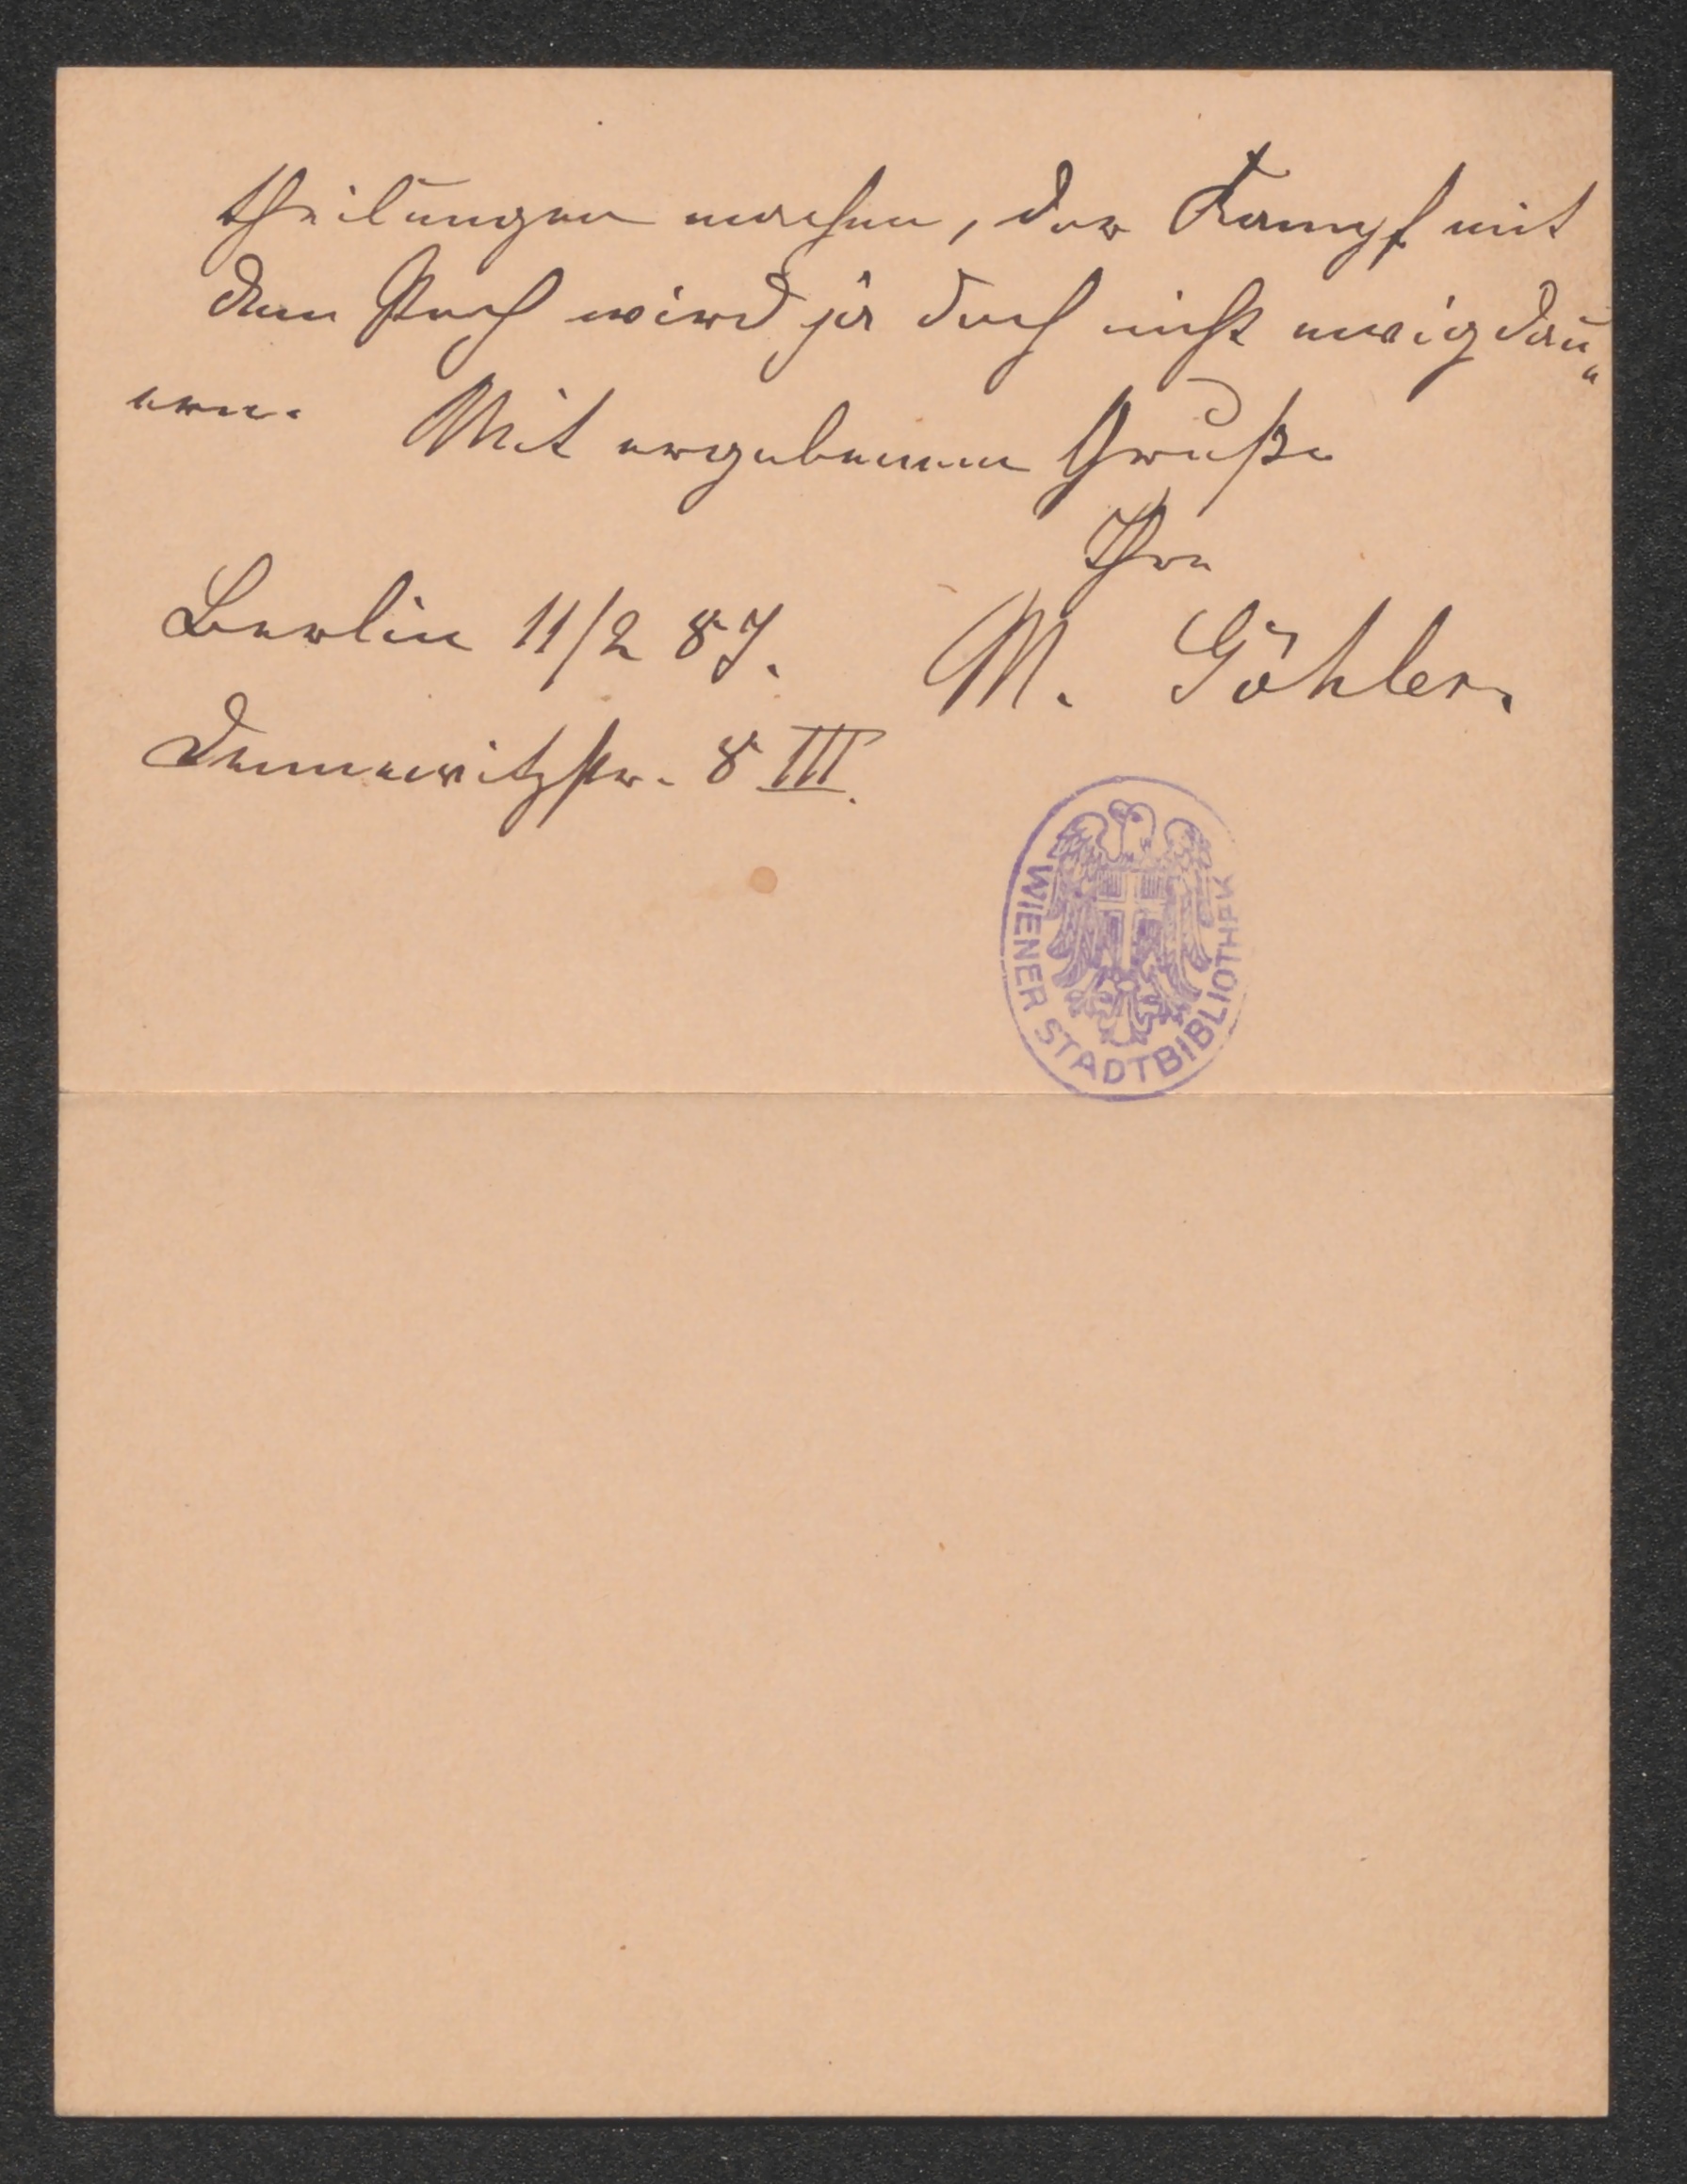 theilungen machen, der Kampf mit
dem Pech wird ja doch nicht ewig dau„
ern. Mit ergebenem Gruße
Ihre
Berlin 11/2 87. M. Göhler.
Dennewitzstr. 8 III.
WIENER STADTBIBLIOTHEK